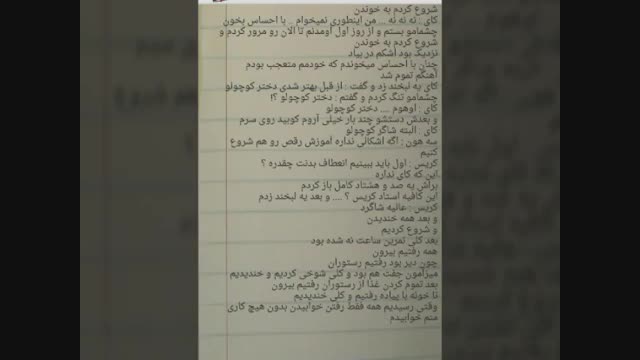 شروع کردم به خوندن
کای : نه نه نه ... من اینطوری نمیخوام .. با احساس بخون
چشمامو بستم و از روز اول اومدنم تا الان رو مرور کردم و
شروع کردم به خوندن
نزدیک بود اشکم در بیاد
چنان با احساس میخوندم که خودمم متعجب بودم
آهنگم تموم شد
کای یه لبخند زد و گفت : از قبل بهتر شدی دختر کوچولو
چشمامو تنگ کردم و گفتم : دختر کوچولو ؟!
کای : اوهوم .... دختر کوچولو
و بعدش دستشو چند بار خیلی آروم کوبید روی سرم
کای : البته شاگر کوچولو
سه هون : اگه اشکالی نداره آموزش رقص رو هم شروع
کنیم
کریس : اول باید ببینیم انعطاف بدنت چقدره ؟
این که کای نداره
براش یه صد و هشتاد کامل باز کردم
این کافیه استاد کریس ؟ .... و بعد یه لبخند زدم
کریس : عالیه شاگرد
و بعد همه خندیدن
و شروع کردیم
بعد کلی تمرین ساعت نه شده بود
همه رفتیم بیرون
چون دیر بود رفتیم رستوران
میزامون جفت هم بود و کلی شوخی کردیم و خندیدیم
بعد تموم کردن غذا از رستوران رفتیم بیرون
تا خونه با پیاده رفتیم و کلی خندیدیم
وقتی رسیدیم همه فقط رفتن خوابیدن بدون هیچ کاری
منم خوابیدم